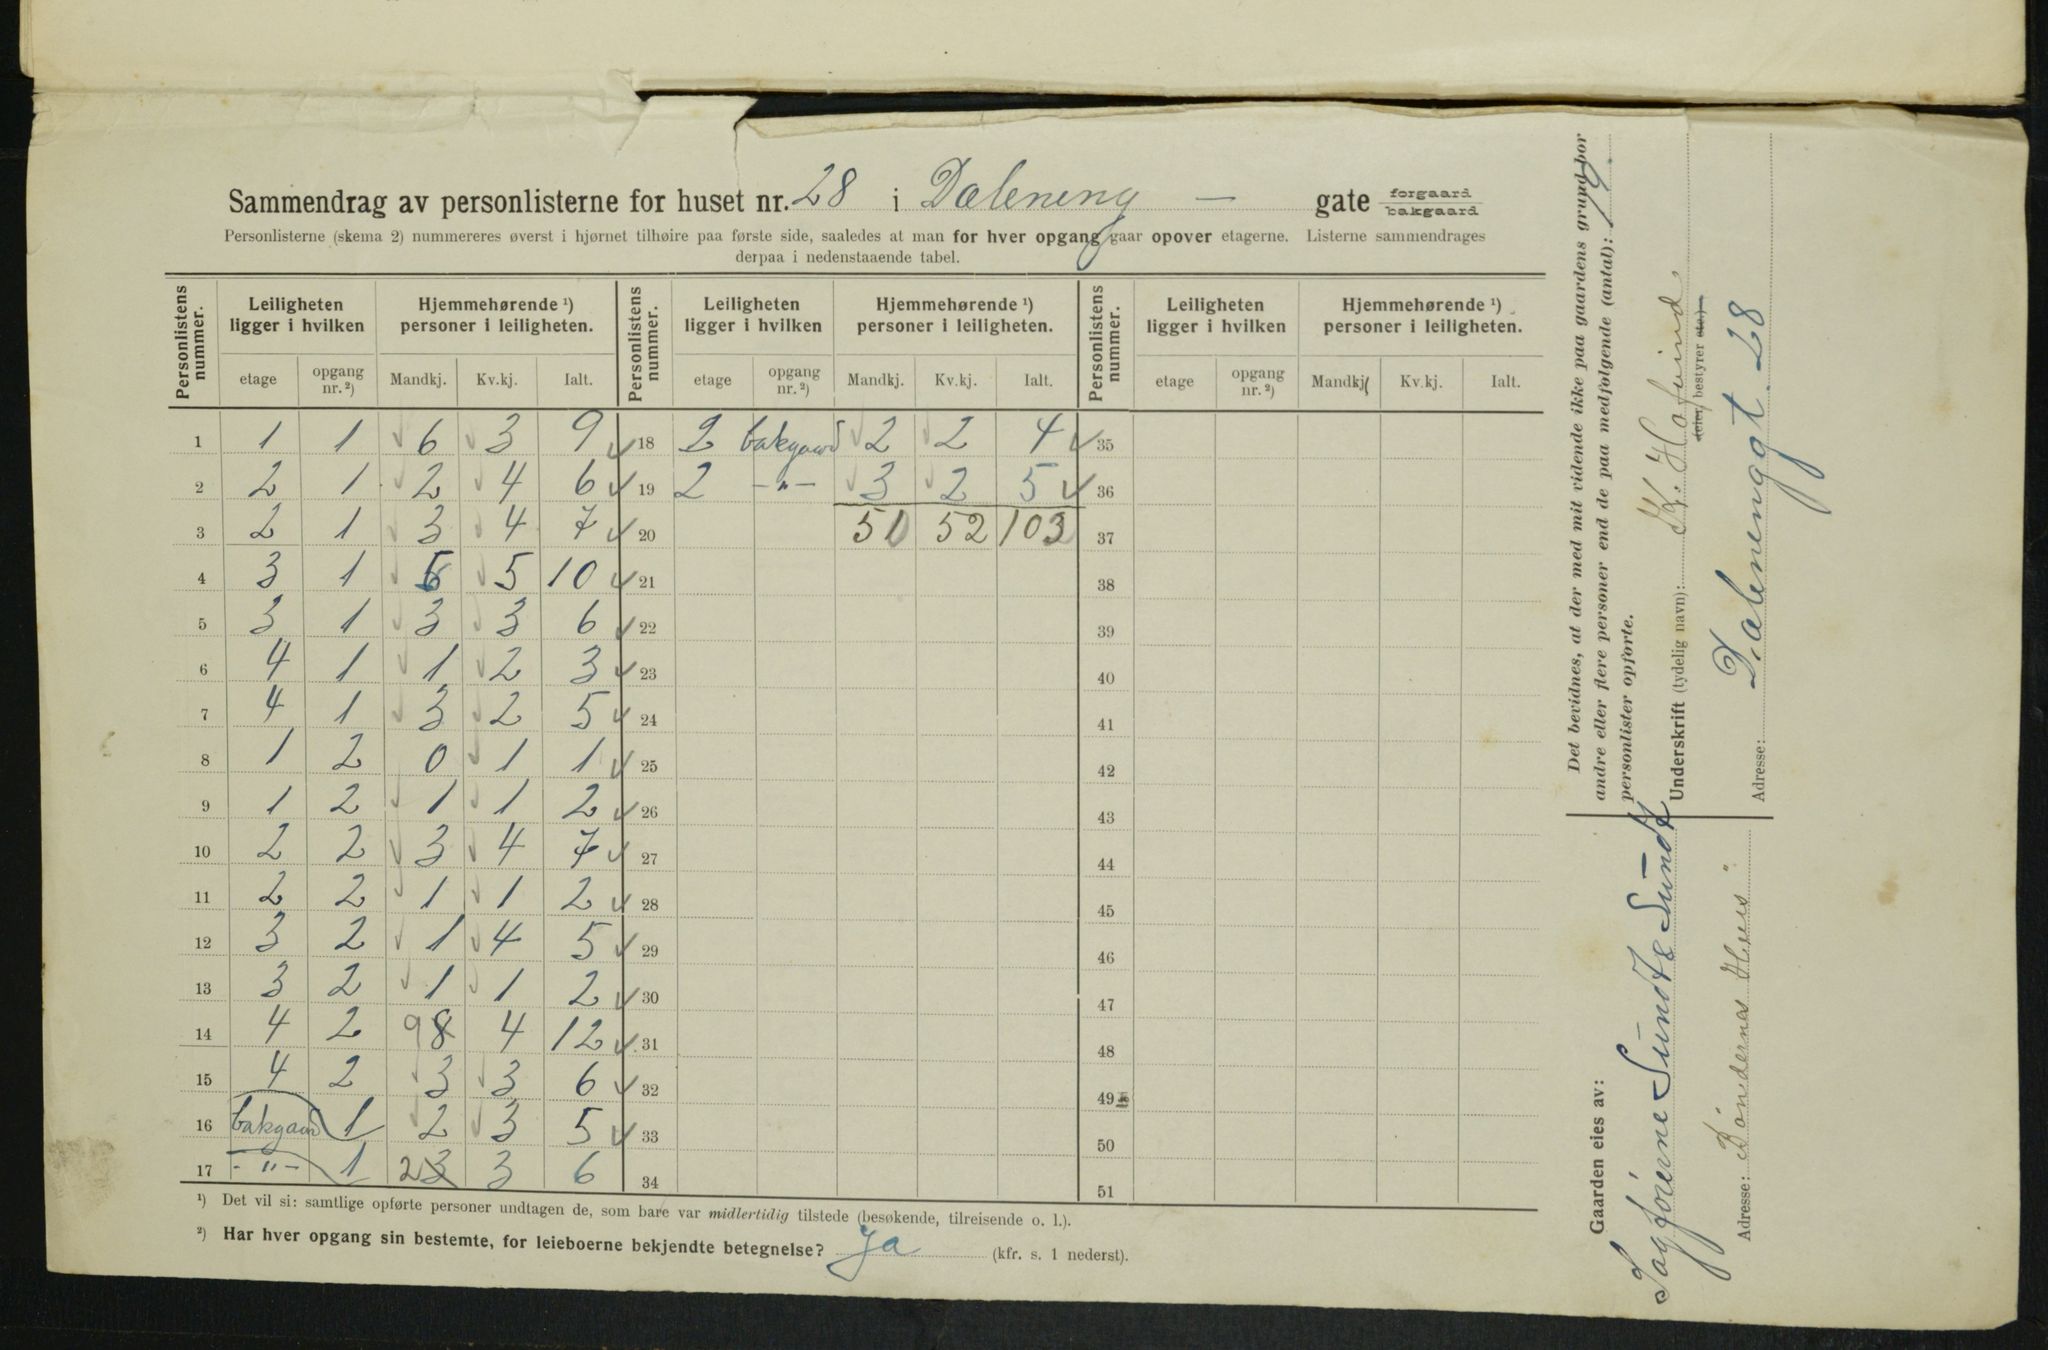 Sammendrag av personlisterne for huset nr. 28 i Dæleneng — gate forgaard bakgaard
Personlisterne (skema 2) nummereres øverst i hjørnet tilhøire paa første side, saaledes at man for hver opgang gaar opover etagerne. Listerne sammendrages
derpaa i nedenstaaende tabel.
Personlistens nummer. Leiligheten ligger i hvilken Hjemmehørende ¹) personer i leiligheten. Personlistens nummer. Leiligheten ligger i hvilken Hjemmehørende ¹) personer i leiligheten. Personlistens nummer. Leiligheten ligger i hvilken Hjemmehørende ¹) personer i leiligheten.
etage opgang nr. ²) Mandkj. Kv.kj. Ialt. etage opgang nr. ²) Mandkj. Kv.kj. Ialt. etage opgang nr. ²) Mandkj. Kv.kj. Ialt.
1 1 1 6 3 9 18 2 bakgaard 2 2 4 35
2 2 1 2 4 6 19 2 -"- 3 2 5 36
3 2 1 3 4 7 20 51 52 103 37
4 3 1 5 5 10 21 38
5 3 1 3 3 6 22 39
6 4 1 1 2 3 23 40
7 4 1 3 2 5 24 41
8 1 2 0 1 1 25 42
9 1 2 1 1 2 26 43
10 2 2 3 4 7 27 44
11 2 2 1 1 2 28 45
12 3 2 1 4 5 29 46
13 3 2 1 1 2 30 47
14 4 2 9 8 4 12 31 48
15 4 2 3 3 6 32 49
16 bakgaard 1 2 3 5 33 50
17 -"- 1 2 3 3 6 34 51
¹) Det vil si: samtlige opførte personer undtagen de, som bare var midlertidig tilstede (besøkende, tilreisende o. l.).
²) Har hver opgang sin bestemte, for leieboerne bekjendte betegnelse? Ja (kfr. s. 1 nederst).
Det bevidnes, at der med mit vidende ikke paa gaardens grund bor
andre eller flere personer end de paa medfølgende (antal): 19.
personlister opførte.
Underskrift (tydelig navn): K. Hofvind
(eier, bestyrer etc.)
Adresse: Dælenenggt. 28
Gaarden eies av:
Sagførerne Sundt & Sundt
Adresse: "Bøndernes Hus"